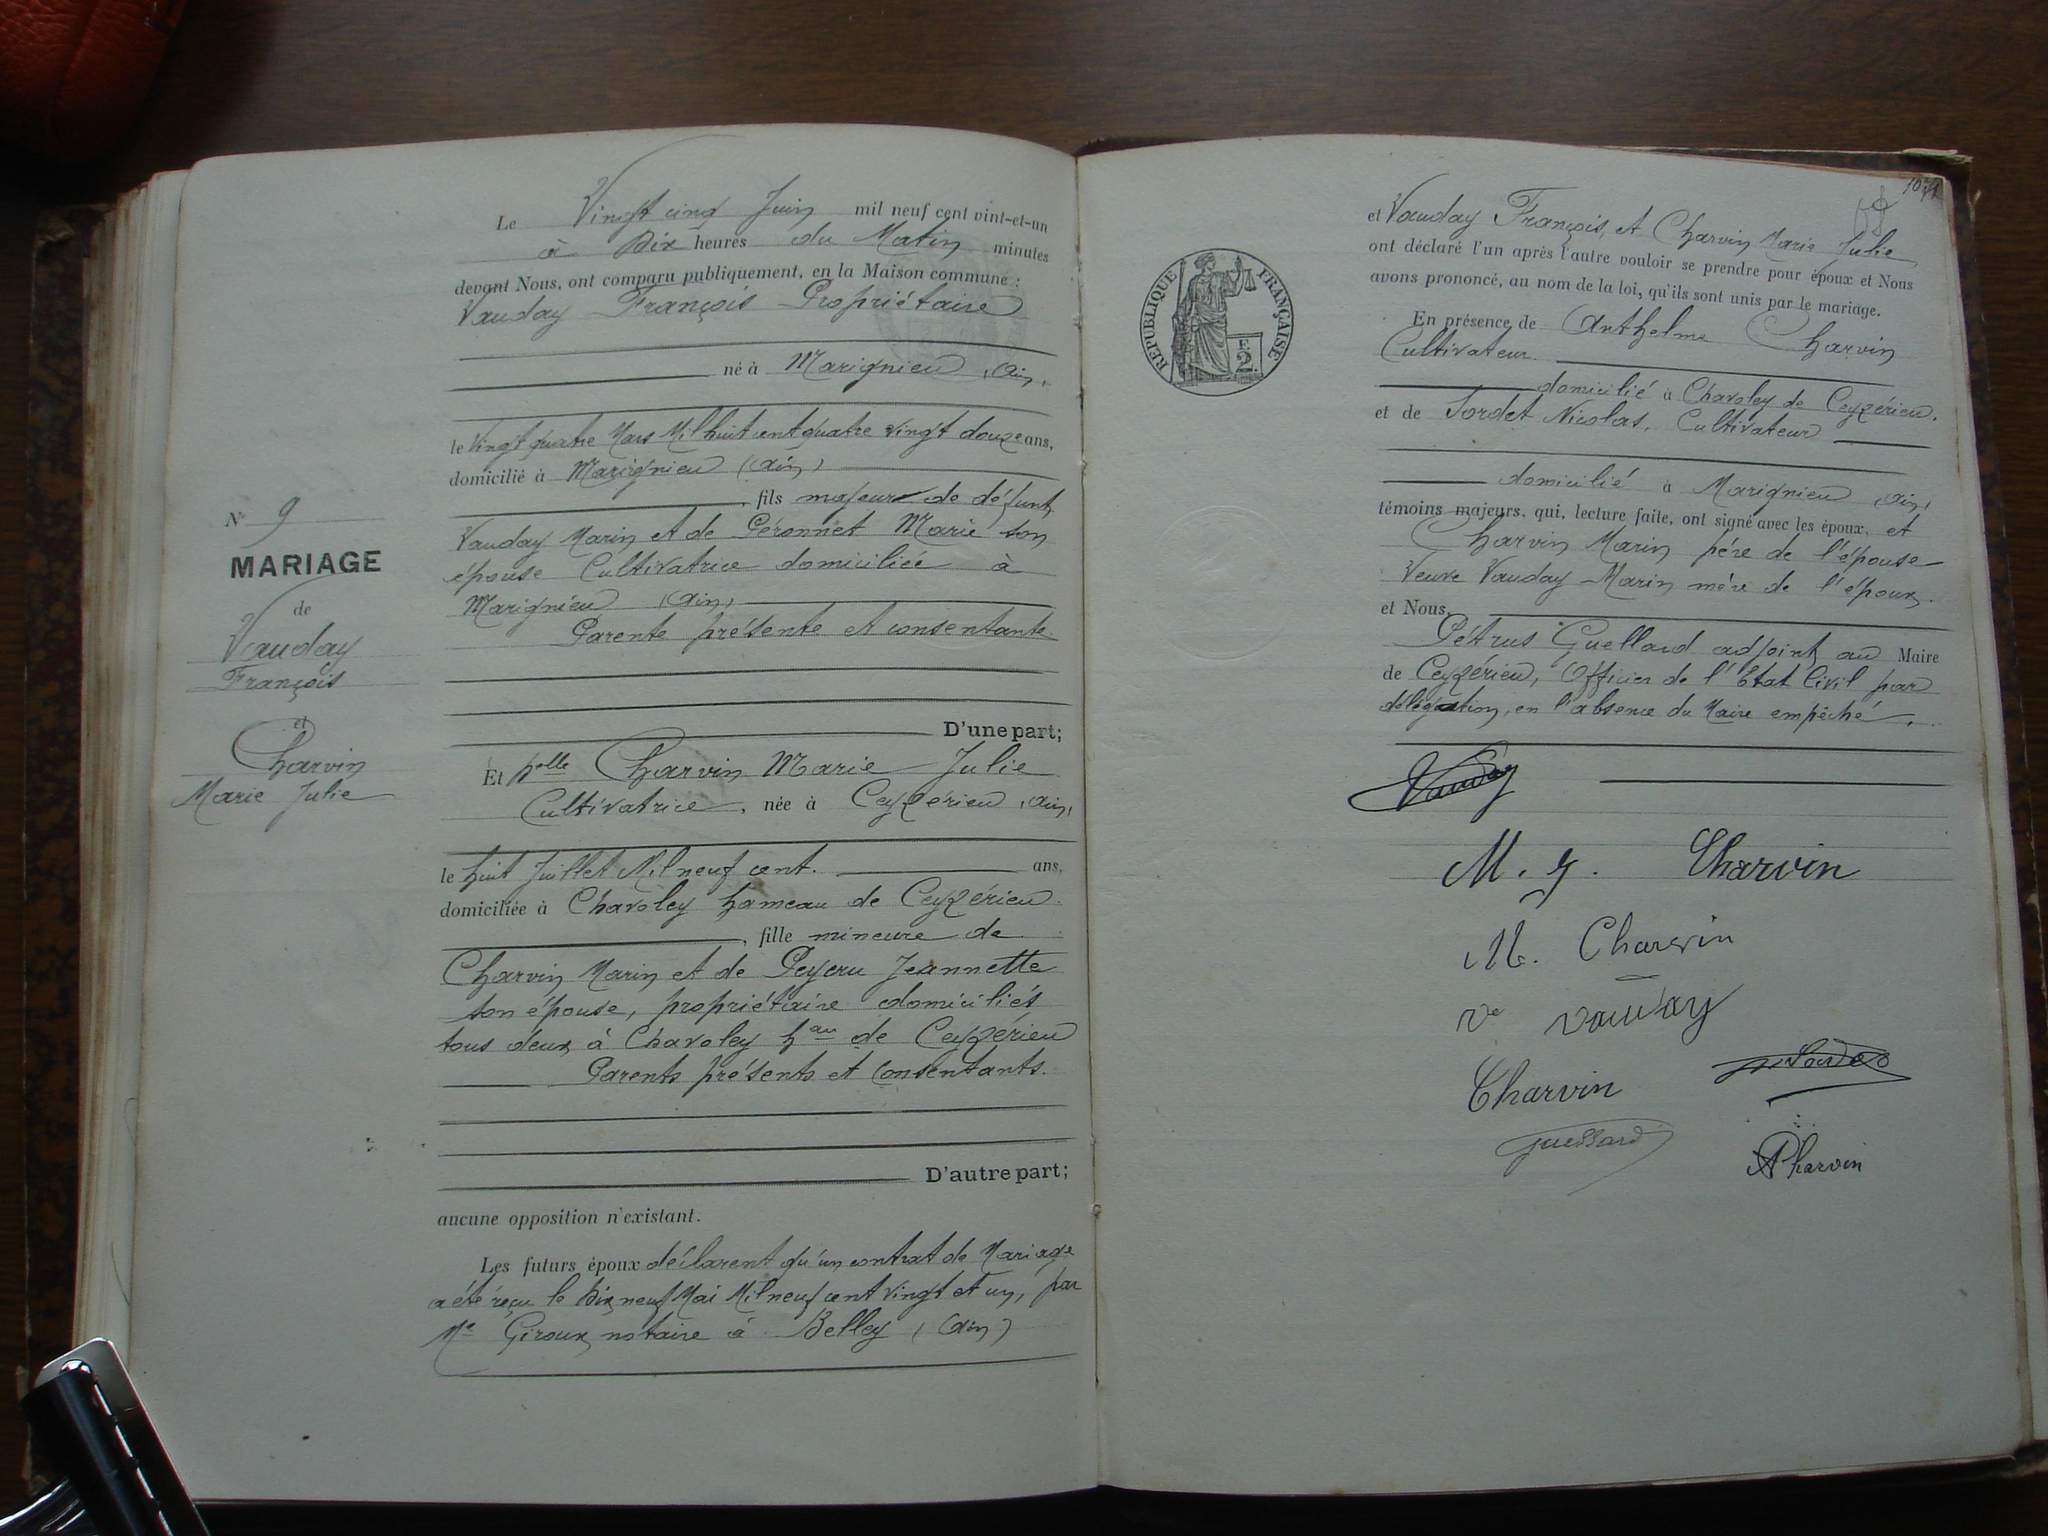 Le Vingt cinq Juin mil neuf cent vint-et-un
à Dix heures du Matin minutes
devant Nous, ont comparu publiquement, en la Maison commune :
Vauday François Propriétaire
né à Marignieu (Ain)
le Vingt quatre Mars Mil huit cent quatre vingt douze ans,
domicilié à Marignieu (Ain)
, fils majeur de défunt
Vauday Marin et de Peronnet Marie son
épouse Cultivatrice domiciliée à
Marignieu (Ain)
Parente présente et consentante.
D'une part;
N° 9
MARIAGE
de
Vauday
François
et
Charvin
Marie Julie
Et Melle Charvin Marie Julie
Cultivatrice, née à Ceyzérieu (Ain)
le huit Juillet Mil neuf cent. ans,
domiciliée à Chavoley hameau de Ceyzérieu.
, fille mineure de
Charvin Marin et de Peyeru Jeannette
son épouse, propriétaire domiciliés
tous deux à Chavoley hau de Ceyzérieu
Parents présents et consentants.
D'autre part;
aucune opposition n'existant.
Les futurs époux déclarent qu'un contrat de Mariage
a été reçu le Dix neuf Mai Mil neuf cent vingt et un, par
Me Giroux notaire à Belley (Ain)
et Vauday François, et Charvin Marie Julie
ont déclaré l'un après l'autre vouloir se prendre pour époux et Nous
avons prononcé, au nom de la loi, qu'ils sont unis par le mariage.
RÉPUBLIQUE FRANÇAISE
F.
2.
En présence de Anthelme Charvin
Cultivateur
domicilié à Chavoley de Ceyzérieu.
et de Sordet Nicolas, Cultivateur
domicilié à Marignieu (Ain)
témoins majeurs, qui, lecture faite, ont signé avec les époux, et
Charvin Marin père de l'épouse
Veuve Vauday Marin mère de l'époux.
et Nous,
Pétrus Guellard adjoint au Maire
de Ceyzérieu, Officier de l'Etat Civil par
délégation, en l'absence du Maire empêché.
Vauday
M. J. Charvin
M. Charvin
Ve Vauday
Charvin
A Charvin